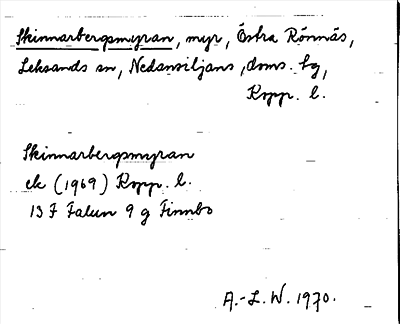 Skinnarbergsmyran, myr, Östra Rönnäs,
Leksands sn, Nedansiljans doms. tg,
Kopp. l.
Skinnarbergsmyran
ek (1969) Kopp. l.
13 F Falun 9 g Finnbo
A.-L. W. 1970.